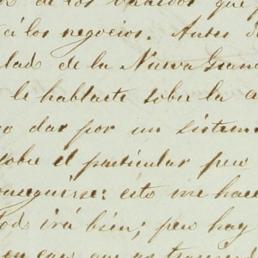 de los que
á los negocios. Antes de
lado de la Nueva Gran
le hablaste sobre la
dar por un sistem
sobre el particular pero
conseguirse: esto me hace
irá bien; pero hay
en que no